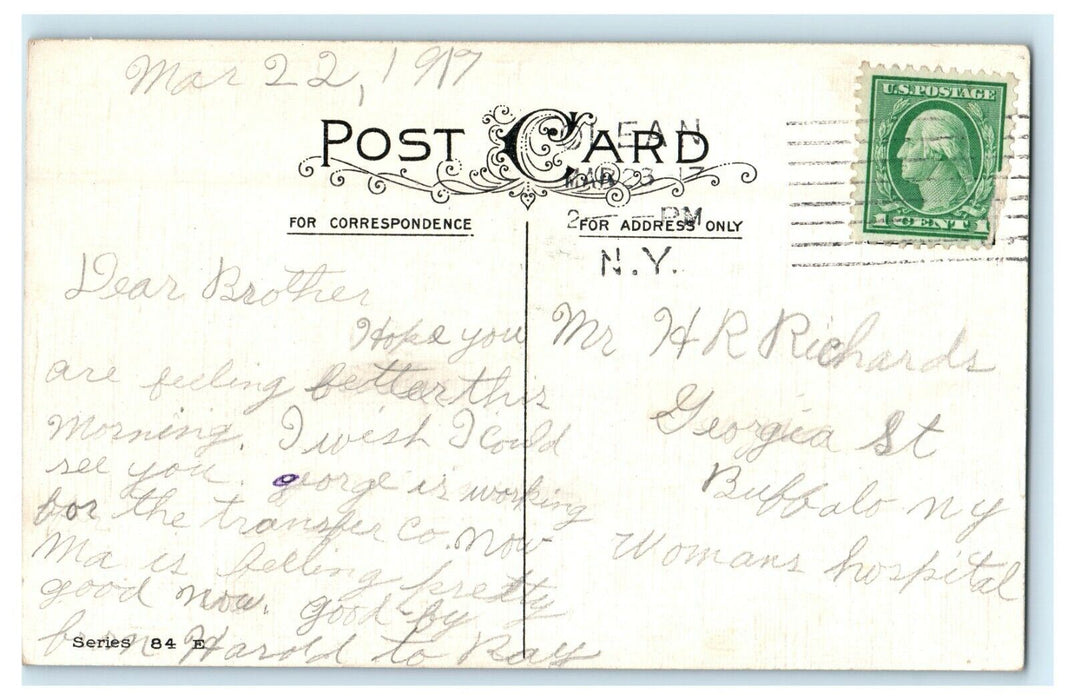 Mar 22, 1917
POST CARD
OLEAN
MAR 23 17
2 — PM
N.Y.
U.S. POSTAGE
1 CENT 1
FOR CORRESPONDENCE
FOR ADDRESS ONLY
Dear Brother
Hope you
are feeling better this
Morning. I wish I could
see you. george is working
for the transfer Co. Now
Ma is felling pretty
good now. good by
from Harold to Ray
Series 84 E
Mr H R Richards
Georgia St
Buffalo NY
Womans hospital